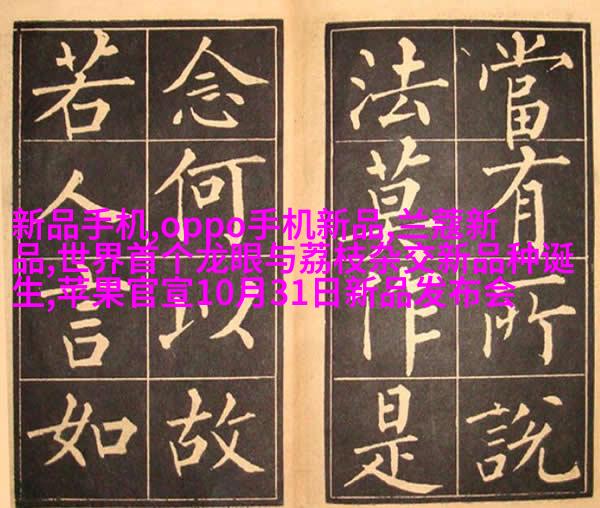 當有所說
法莫作是
念何以故
若人言如
新品手机,oppo手机新品,兰蔻新
品,世界首个龙眼与荔枝杂交新品种诞
生,苹果官宣10月31日新品发布会